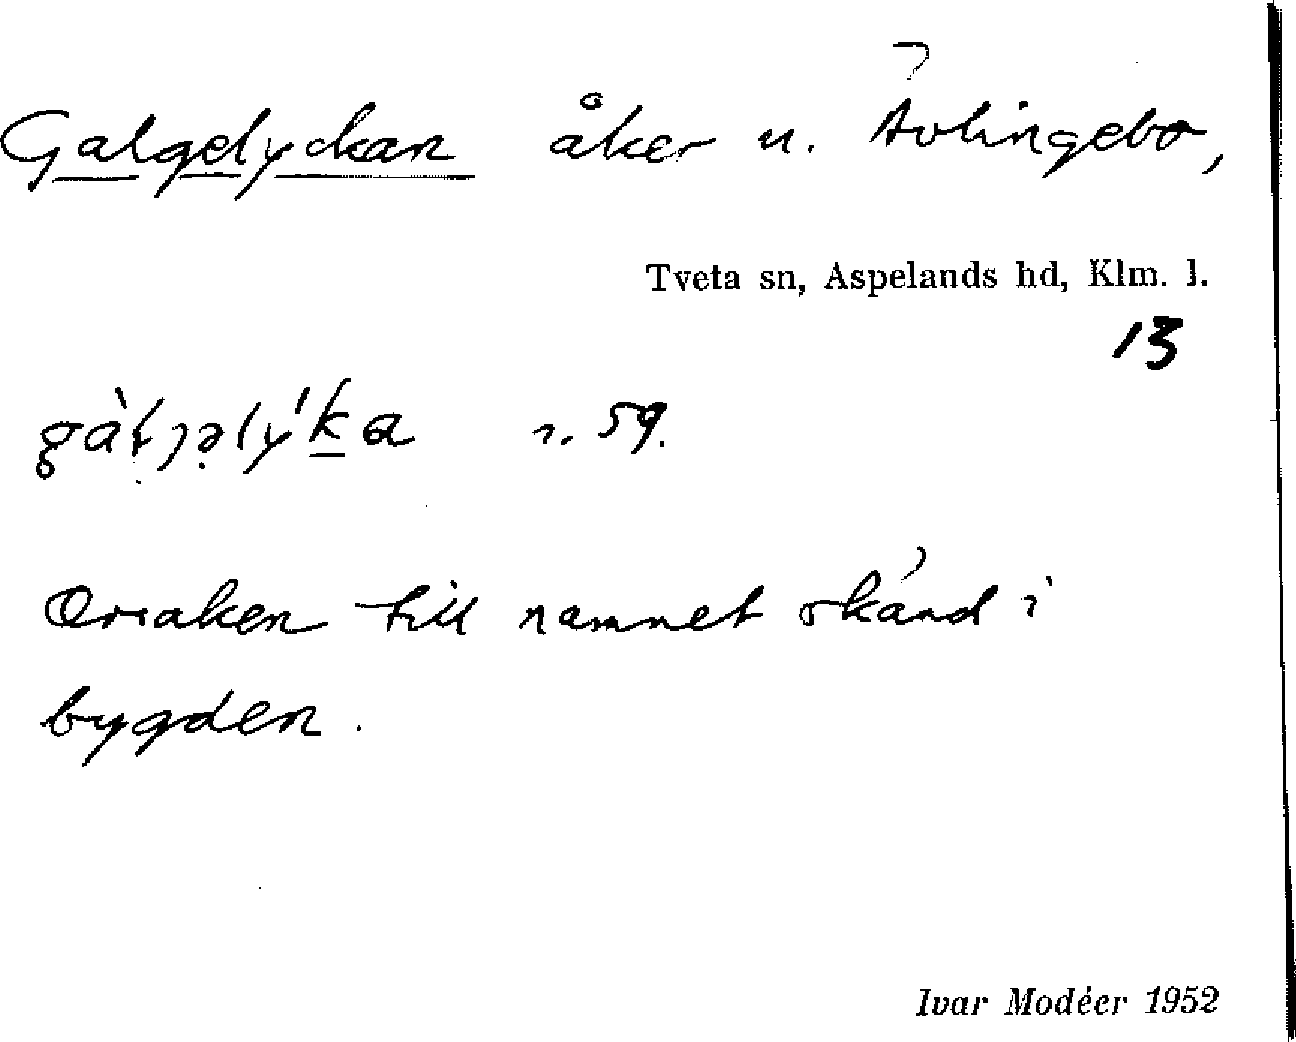 Galgelyckan åker u. Åvlingebo,
Tveta sn, Aspelands hd, Klm. l.
13
59.
Orsaken till namnet okänd i
bygden.
Ivar Modéer 1952